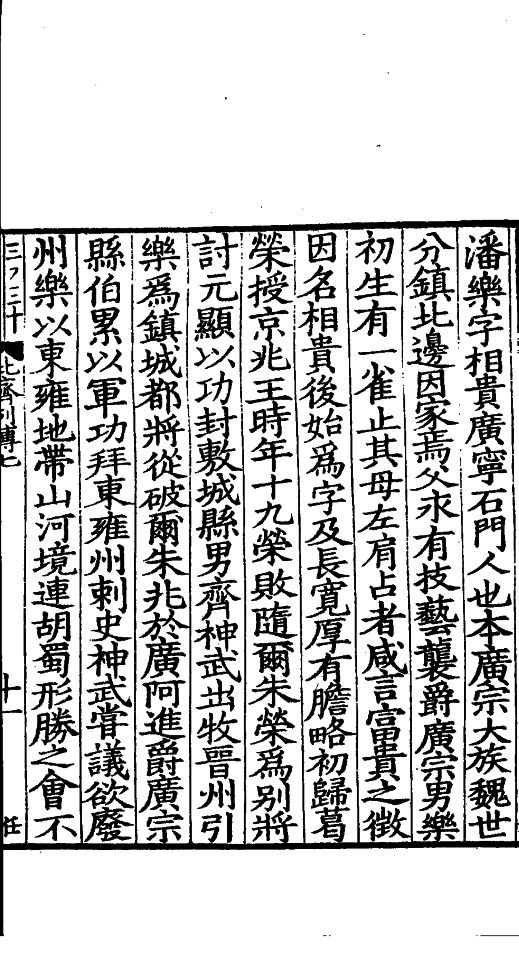 潘樂字相貴廣寧石門人也本廣宗大族魏世
分鎮北邊因家焉父永有技藝襲爵廣宗男樂
初生有一雀止其母左肩占者咸言富貴之徵
因名相貴後始爲字及長寬厚有膽略初歸葛
榮授京兆王時年十九榮敗隨爾朱榮爲別將
討元顯以功封敷城縣男齊神武出牧晉州引
樂爲鎮城都將從破爾朱兆於廣阿進爵廣宗
縣伯累以軍功拜東雍州刺史神武嘗議欲廢
州樂以東雍地帶山河境連胡蜀形勝之會不
北齊列傳七 十一 任